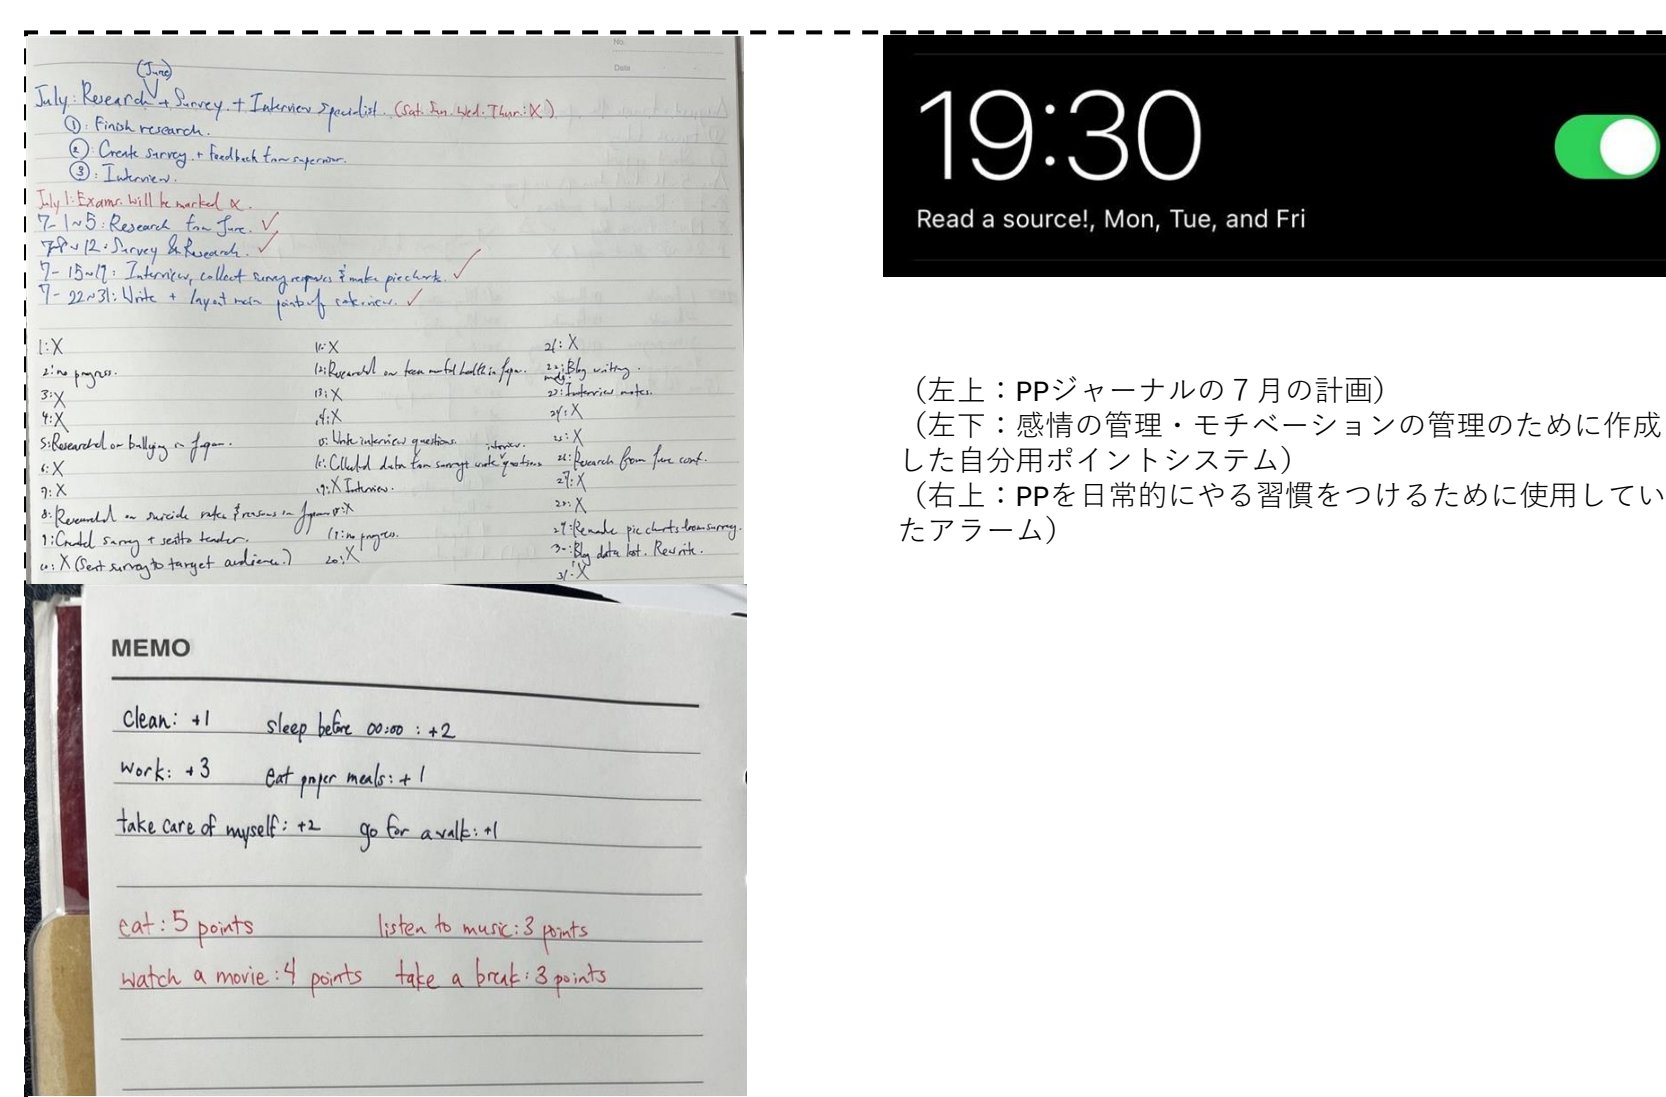 No.
Date
(June)
July: Research + Survey + Interview specialist. (Sat. Sun. Wed. Thur: X)
①: Finish research.
②: Create survey + feedback from supervisor.
③: Interview.
July 1: Exams. Will be marked x.
7-1~5: Research from June. ✓
7-8~12: Survey & Research. ✓
7-15~19: Interview, collect survey responses & make piecharts. ✓
7-22~31: Write + layout main points of interview. ✓
1: X
2: no progress.
3: X
4: X
5: Researched on bullying in Japan.
6: X
7: X
8: Researched on suicide rates & reasons in Japan
9: Created survey + sent to teacher.
10: X (Sent survey to target audience.)
11: X
12: Researched on teen mental health in Japan.
13: X
14: X
15: Write interview questions.
16: Collected data from survey & write interview questions
17: X Interview.
18: X
19: no progress.
20: X
21: X
22: Blog writing.
23: Interview notes.
24: X
25: X
26: Research from June cont.
27: X
28: X
29: Remake pie charts from survey.
30: Blog data lost. Rewrite.
31: X
MEMO
clean: +1 sleep before 00:00 : +2
work: +3 eat proper meals: +1
take care of myself: +2 go for a walk: +1
eat: 5 points listen to music: 3 points
watch a movie: 4 points take a break: 3 points
19:30
Read a source!, Mon, Tue, and Fri
（左上：PPジャーナルの７月の計画）
（左下：感情の管理・モチベーションの管理のために作成
した自分用ポイントシステム）
（右上：PPを日常的にやる習慣をつけるために使用してい
たアラーム）